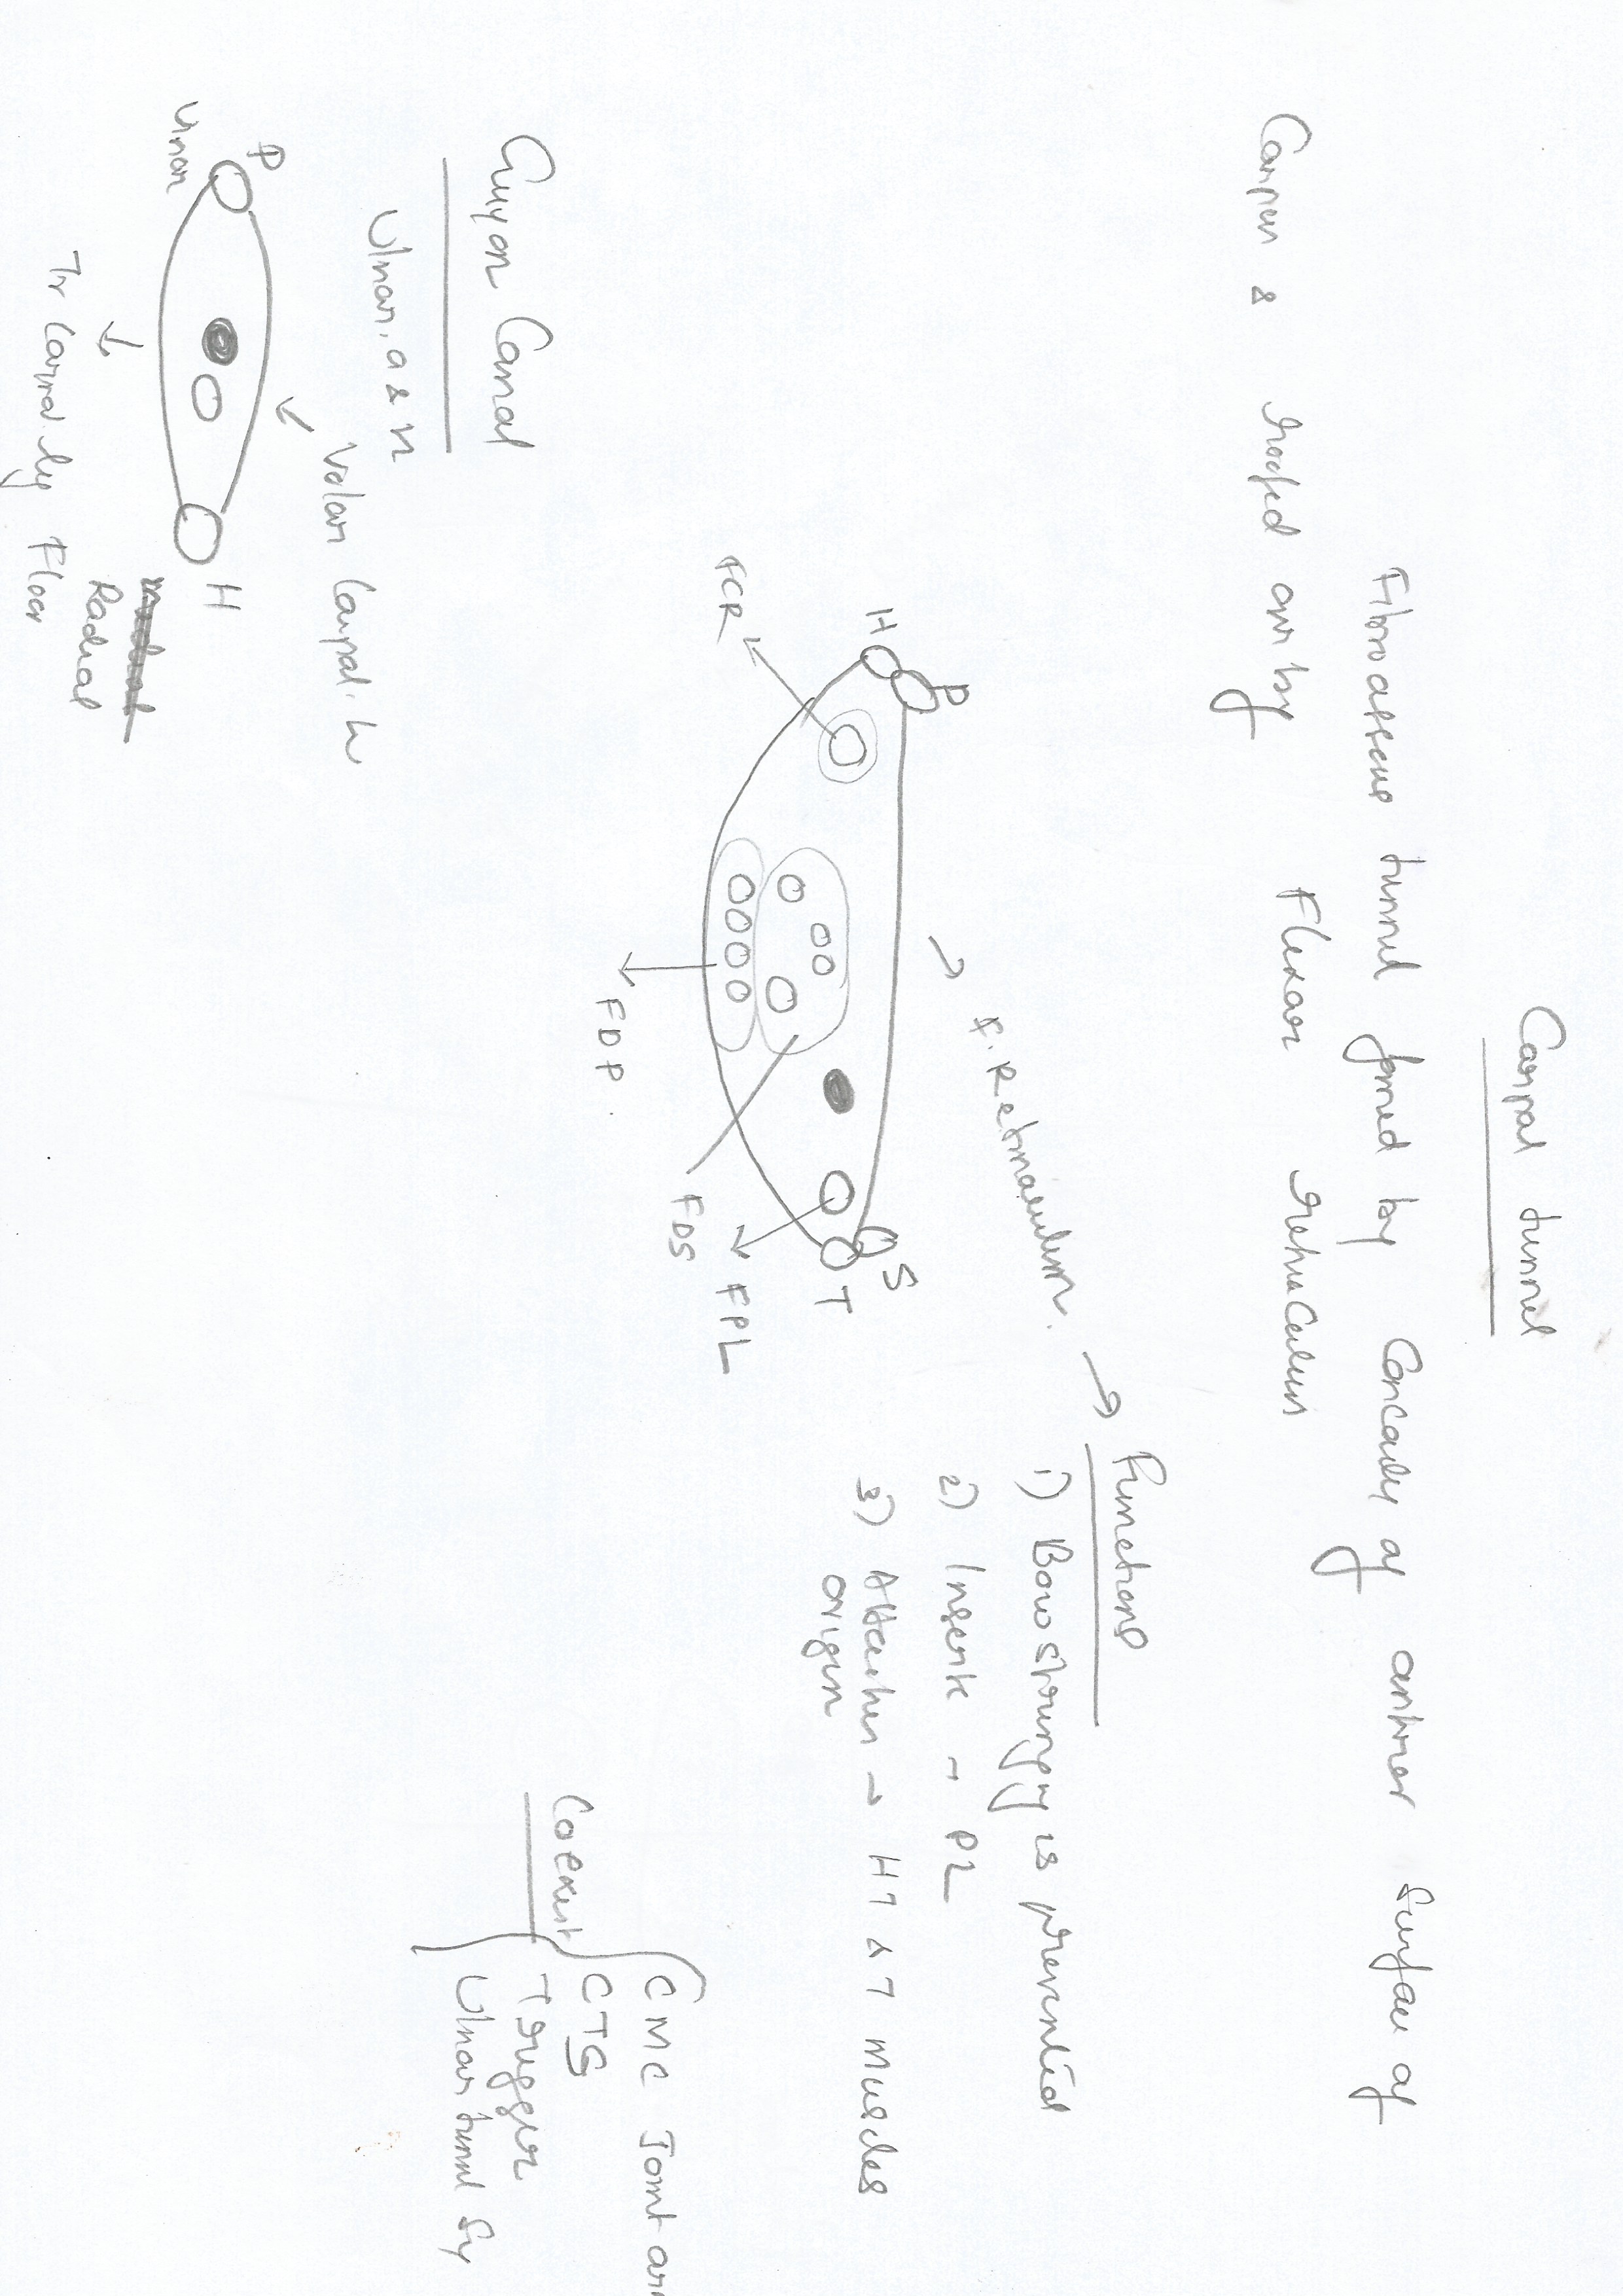 Carpal tunnel
Fibroosseus tunnel formed by Concavity of anterior surface of
Carpus & roofed over by Flexor retinaculum
f. Retinaculum. →
Functions
1) Bowstringing is prevented
2) Inserts → PL
3) Attaches → HT & T muscles
origin
P
H
FCR
FDP.
FDS
FPL
S
T
Coexist
CMC Joint
CTS
Trigger
Ulnar tunnel Sy
Guyon Canal
Ulnar. a & n
Volar Carpal. L
P
Ulnar
H
Radial
Tr Carpal. lig Floor